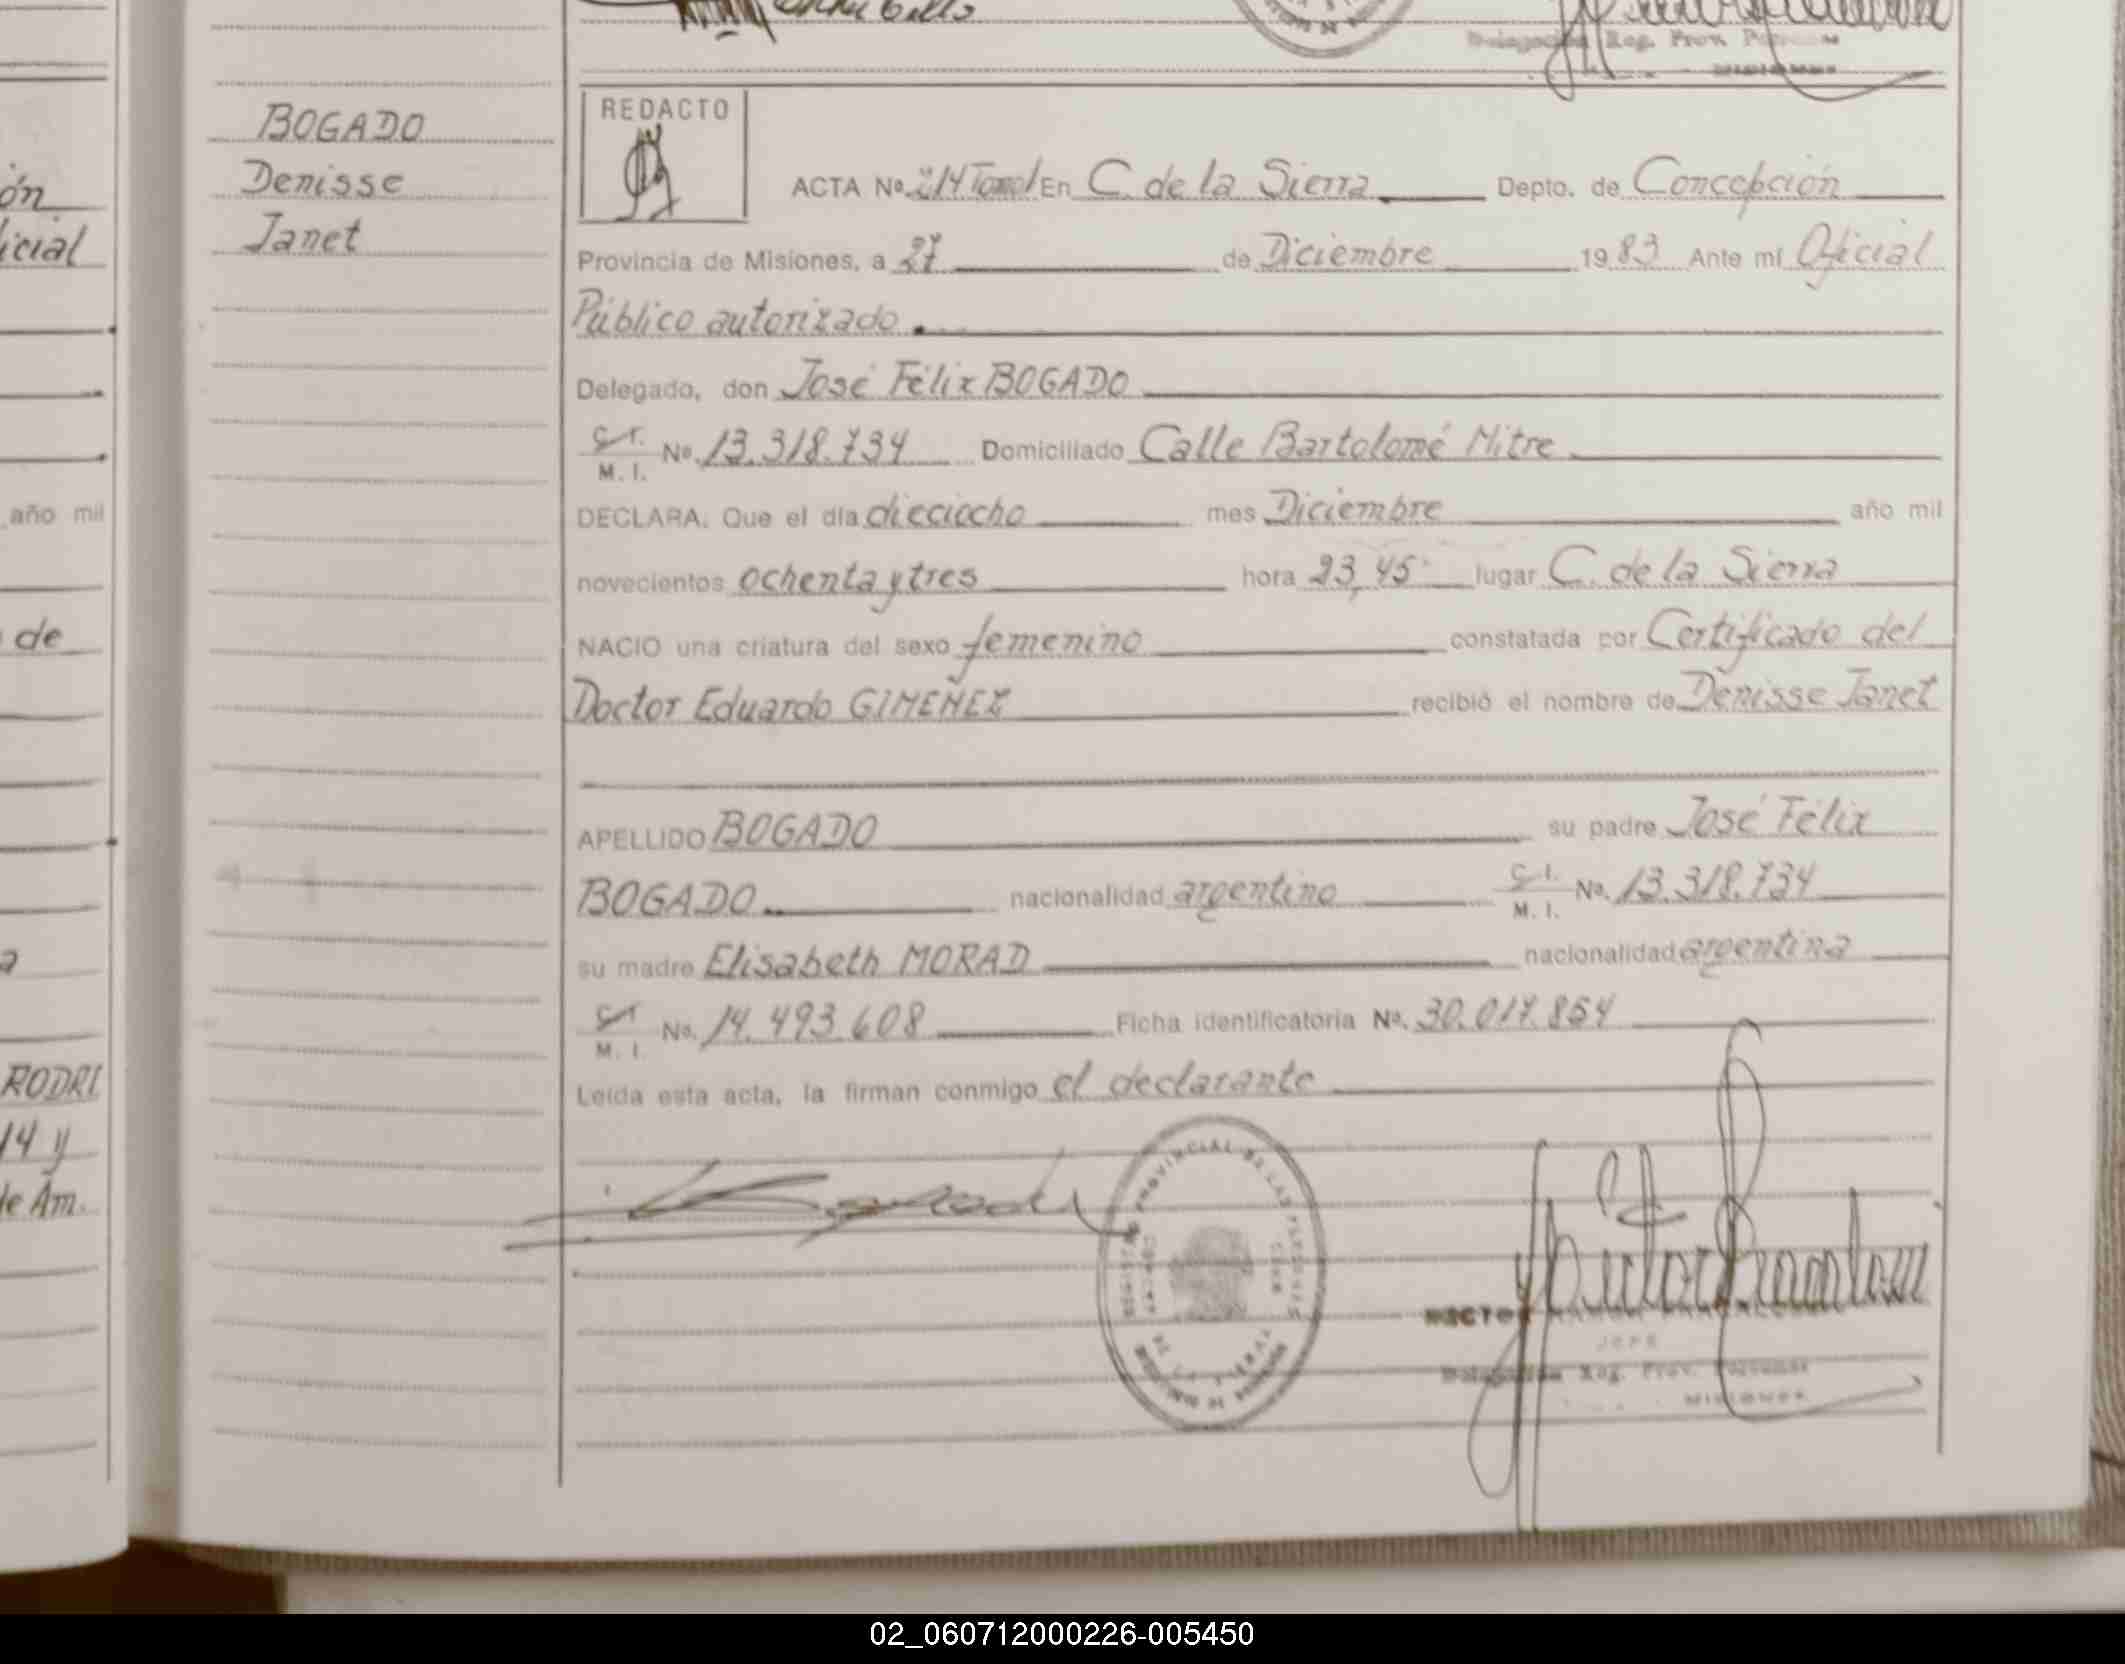 Delegación Reg. Prov. Personas
MISIONES
ón
icial
año mil
de
a
RODRI
14 y
de Am.
BOGADO
Denisse
Janet
REDACTO
ACTA Nº 214 Tomo I En C. de la Sierra Depto. de Concepción
Provincia de Misiones, a 27 de Diciembre 1983 Ante mí Oficial
Público autorizado.
Delegado, don José Félix BOGADO
C. I. M. I. Nº 13.318.734 Domiciliado Calle Bartolomé Mitre
DECLARA. Que el día dieciocho mes Diciembre año mil
novecientos ochenta y tres hora 23,45 lugar C. de la Sierra
NACIO una criatura del sexo femenino constatada por Certificado del
Doctor Eduardo GIMENEZ recibió el nombre de Denisse Janet
APELLIDO BOGADO su padre José Félix
BOGADO nacionalidad argentino C. I. M. I. Nº. 13.318.734
su madre Elisabeth MORAD nacionalidad argentina
C. I. M. I. Nº. 14.493.608 Ficha identificatoria Nº. 30.017.854
Leída esta acta, la firman conmigo el declarante
REGISTRO PROVINCIAL DE LAS PERSONAS
JEFE
Delegación Reg. Prov. Personas
MISIONES
02_060712000226-005450